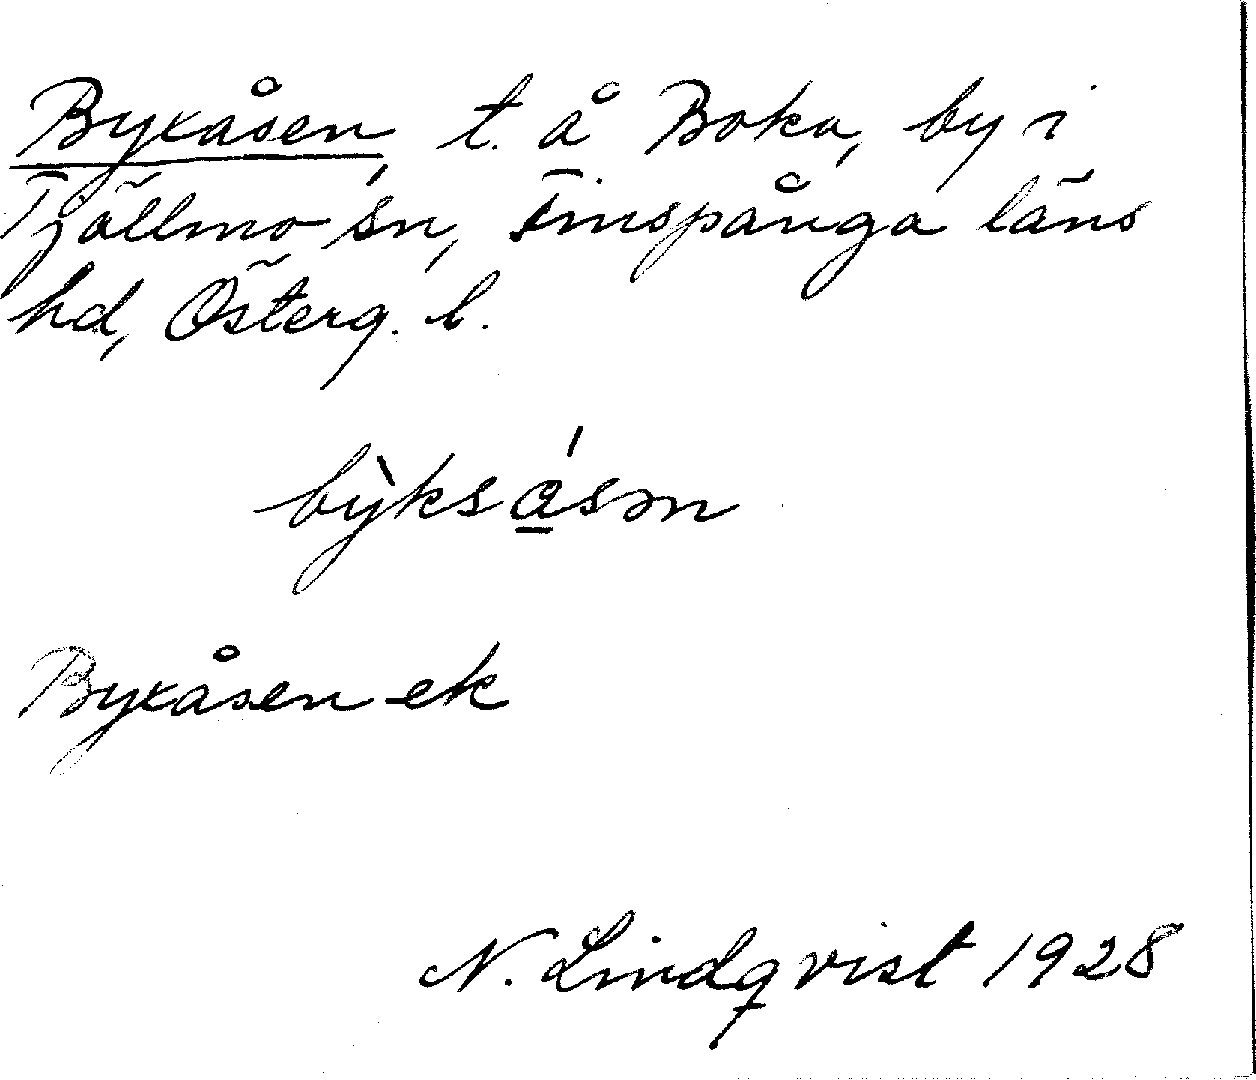 Byxåsen, t. å Boka, by i
Tjällmo sn, Finspånga läns
hd, Österg. l.
bỳksá̲sən
Byxåsen ek
N. Lindqvist 1928